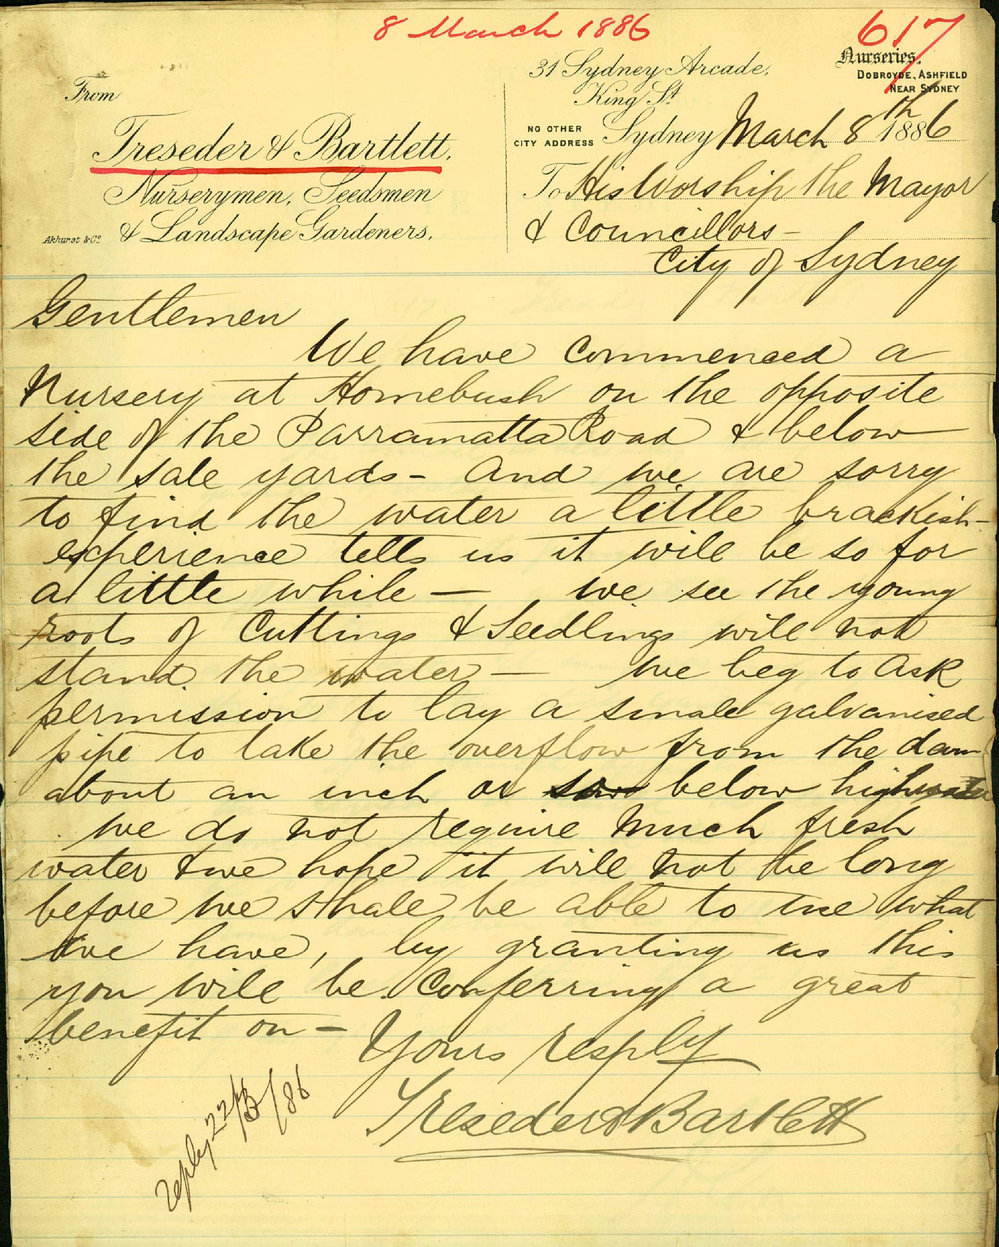 8 March 1886
617
From
Treseder & Bartlett.
Nurserymen, Seedsmen
& Landscape Gardeners.
Akhurst & Co
31 Sydney Arcade,
King St
NO OTHER
CITY ADDRESS
Nurseries,
DOBROYDE, ASHFIELD
NEAR SYDNEY
Sydney March 8th 1886
To His Worship the Mayor
& Councillors –
City of Sydney
Gentlemen
We have commenced a
Nursery at Homebush on the opposite
side of the Parramatta Road & below
the sale yards – And we are sorry
to find the water a little brackish –
experience tells us it will be so for
a little while – we see the young
roots of Cuttings & Seedlings will not
stand the water – We beg to ask
permission to lay a small galvanised
pipe to take the overflow from the dam
about an inch or below highwater
We do not require much fresh
water & we hope it will not be long
before we shale be able to use what
we have, by granting us this
you will be Conferring a great
benefit on –
Yours resply
Treseder & Bartlett
reply 22/3/86